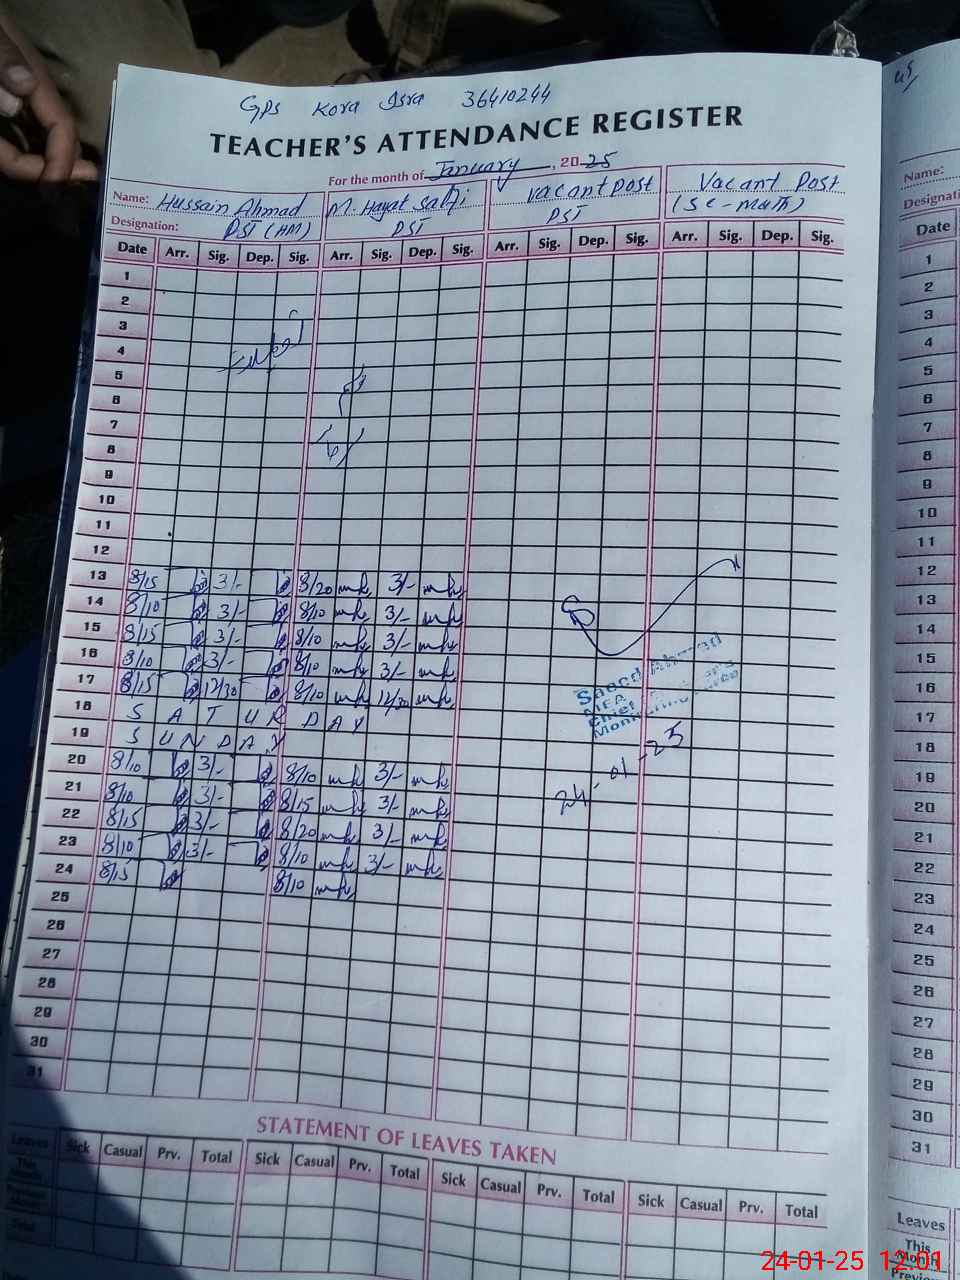 GPS Kora Isra 36410244
TEACHER'S ATTENDANCE REGISTER
For the month of January, 20 25
Name: Hussain Ahmad M. Hayat Safi vacant post Vacant Post
Designation: PST (AM) PST PST (SC-Math)
Date Arr. Sig. Dep. Sig. Arr. Sig. Dep. Sig. Arr. Sig. Dep. Sig. Arr. Sig. Dep. Sig.
1
2
3
4
5
6
7
8
9
10
11
12
13 8/15 3/- 8/20 3/-
14 8/10 3/- 8/10 3/-
15 8/15 3/- 8/10 3/-
16 8/10 3/- 8/10 3/-
17 8/15 12/30 8/10 12/30
18 S A T U R D A Y
19 S U N D A Y
20 8/10 3/- 8/10 3/-
21 8/10 3/- 8/15 3/-
22 8/15 3/- 8/20 3/-
23 8/10 3/- 8/10 3/-
24 8/15 8/10
25
26
27
28
29
30
31
Saeed Ahmed
MEA
Chief
Monitoring
24-01-25
STATEMENT OF LEAVES TAKEN
Leaves Sick Casual Prv. Total Sick Casual Prv. Total Sick Casual Prv. Total Sick Casual Prv. Total
This
Month
Total
Name:
Date
1
2
3
4
5
6
7
8
9
10
11
12
13
14
15
16
17
18
19
20
21
22
23
24
25
26
27
28
29
30
31
Leaves
This
Month
24-01-25 12:01